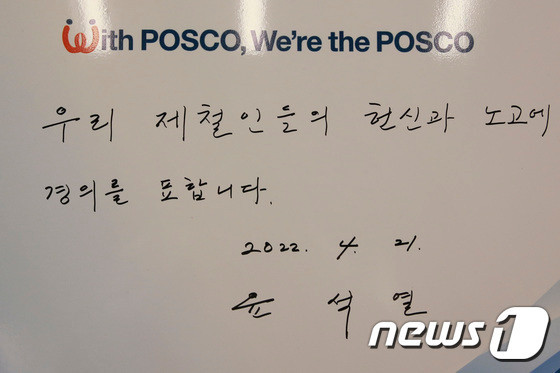 With POSCO, We're the POSCO
우리 제철인들의 헌신과 노고에
경의를 표합니다.
2022. 4. 21.
윤 석 열
news1